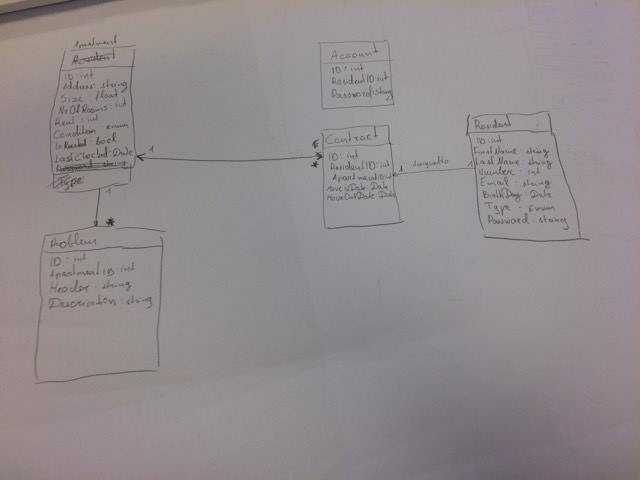 Resident
ID : int
Address : string
Size : float
NrOfRooms : int
Rent : int
Condition : enum
IsRented : bool
LastChecked : Date
Password : string
Type
1
*
1
*
1
1
Problem
ID : int
ApartmentID : int
Header : string
Description : string
Account
ID : int
ResidentID : int
Password : string
Contract
ID : int
ResidentID : int
ApartmentID : int
MoveInDate : Date
MoveOutDate : Date
Resident
ID : int
FirstName : string
LastName : string
Number : int
Email : string
BirthDay : Date
Type : Enum
Password : string